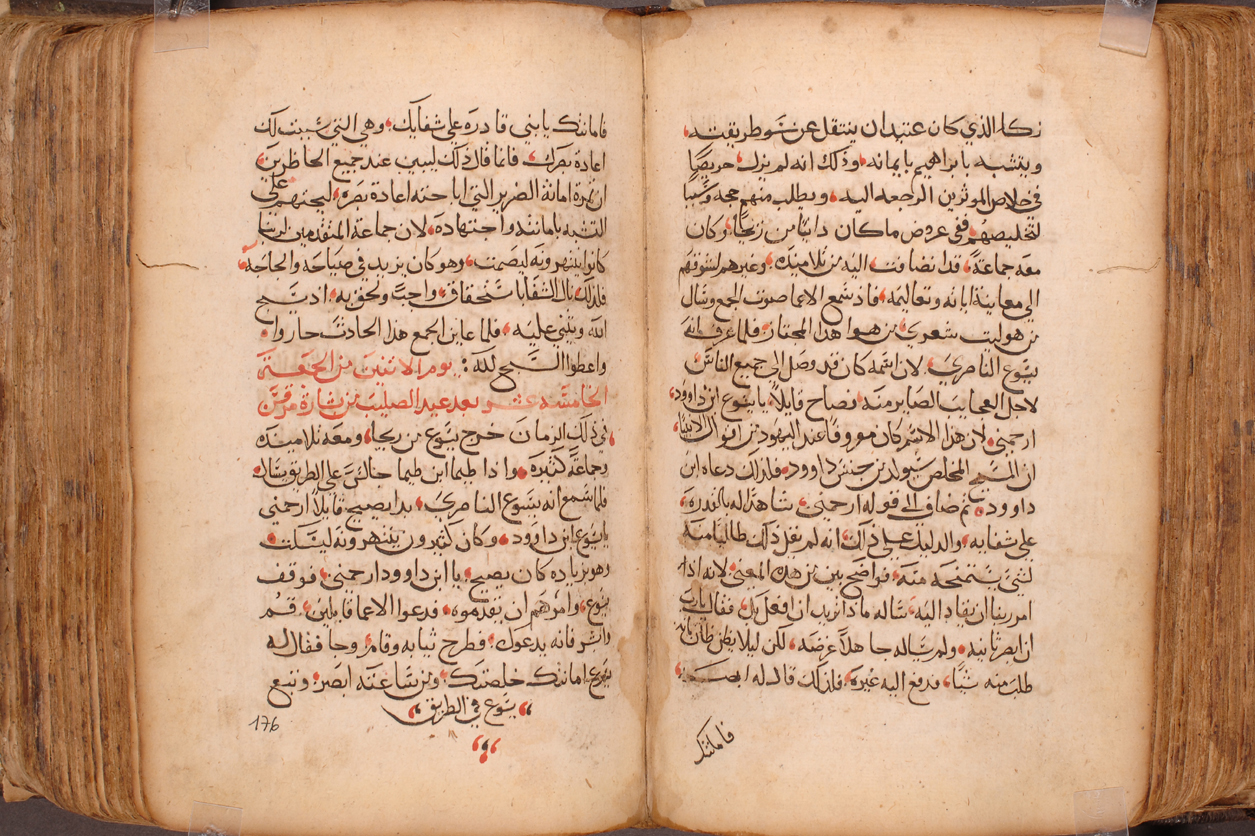 زكا الذي كان عتيدان ينتقل عن نحو طريقته
ويتشبه بابراهيم بايمانه وذلك انه لم يزل حريصًا
في خلاص الموثرين الرجعه اليه ويطلب منهم حجه وسببا
لتخليصهم ففي عروض ما كان دانيًا من ريحا وكان
معه جماعة قد انضافت اليه من تلاميذه وغيرهم لشوقهم
الى معاينة اياته وتعاليمه فاذ سمع الاعما صوت الجمع وسال
من هو ليت شعري من هوا هذا المجتاز فلما عرف انه
يسوع الناصري لان اسمه كان قد وصل الى جميع الناس
لاجل العجايب الصايره منه فصاح قايلًا يا يسوع ابن داوود
ارحمني لان هذا الاسم كان معروفًا عند اليهود من اقوال الانبيا
ان المسيح المخلص سيولد من جنس داوود فلذلك دعاه ابن
داوود ثم ضاف الى قوله ارحمني شاهدًا له بالقدره
على شفايه والدليل على ذلك انه لم يقل ذلك طالبًا منه
لشي يستمنحه منه فواضح بين من هذه المعنى لانه اذا
امر ربنا ان يقاد اليه ساله ماذا تريد ان افعل بك فقال يارب
ان ابصر ثانيه ولم يساله جاهلًا غرضه لكن ليلا يظن ظان انه
طلب منه شيًا فدفع اليه غيره فلذلك قال له ابصر
فامانتك
فامانتك يا بني قادره على شفايك وهي التي سببت لك
اعادة بصرك فانما قال ذلك ليبين عند جميع الحاظرين
ان ثمرة امانة الضرير التي اباحته اعادة بصره ليحثهم على
التشبه بامانته واجتهاده لان جماعة المتقدمين لربنا
كانوا ينتهرونه ليصمت وهو كان يزيد في صياحه والحاحه
فلذلك نال الشفا باستحقاق واجبًا ولحق به اذ يسبح
الله ويثني عليه فلما عاين الجمع هذا الحادث حاروا
واعطوا السبح لله يوم الاثنين من الجمعة
الخامسه عشر بعد عيد الصليب من بشارة مرقس
في ذلك الزمان خرج يسوع من ريحا ومعه تلاميذه
وجماعة كثيره واذا طيما ابن طيما جالس على الطريق يسال
فلما سمع انه يسوع الناصري بدا يصيح قايلًا ارحمني
يا يسوع ابن داوود وكان كثيرون ينتهرونه ليسكت
وهو بزياده كان يصيح يا ابن داوود ارحمني فوقف
يسوع وامرهم ان يقدموه فدعوا الاعما قايلين قم
وابشر فانه يدعوك فطرح ثيابه وقام وجا فقال له
يسوع امانتك خلصتك ومن ساعته ابصر وتبع
يسوع في الطريق
176